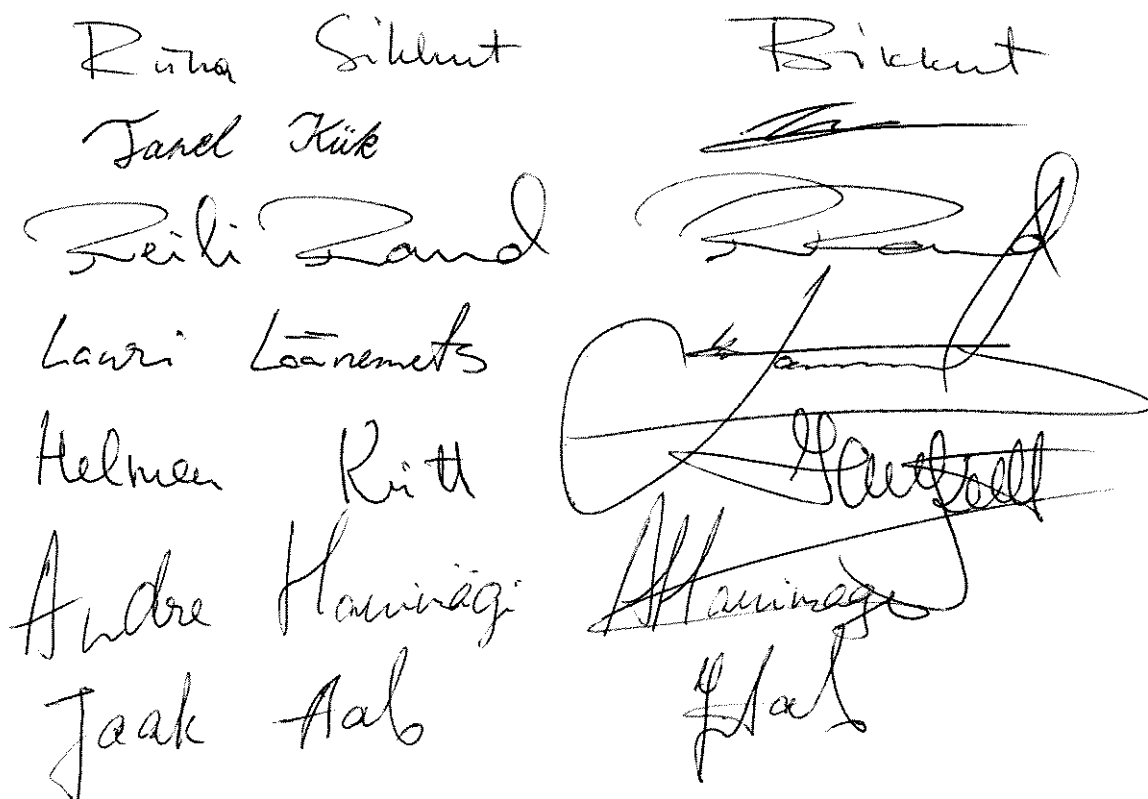 Riina Sikkut Sikkut
Tanel Kiik
Reili Rand RRand
Lauri Läänemets
Helmen Kütt
Andre Hanimägi AHanimägi
Jaak Aab JAab